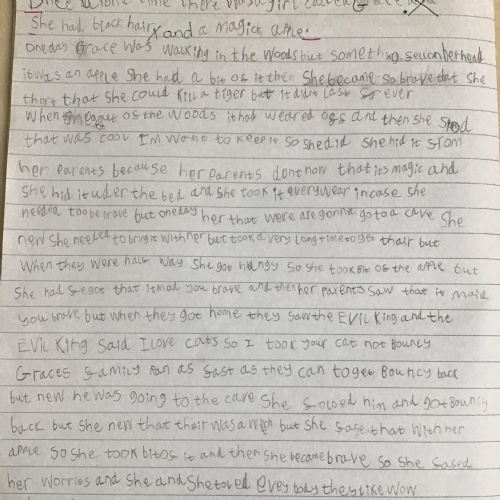 Once a some time there was a girl called Grace
She had black hair and a magick apple.
oneday Grace was walking in the woods but something on her head
it was an apple She had a bit os it then She became so brave that she
thort that she could kill a tiger but it didn last for ever
When She out os the woods it had weared oss and then she
that was cool I'm to keep it so she did she hid it srom
her parents because her parents dont now that its magic and
She hid it uder the bed and she took it everywear incase she
needid too be brave but oneday her that were are gonna go to a cave She
new She needed to bring it with her but took a very long time to get thair but
When they were hals way She got hungy so she took Bit os the apple but
She had segot that it mad you brave and then her parents saw that it maid
you brave but when they got home they saw the EVil King and the
EVIL King Said I Love cats so I took your cat not Bouncy
Graces samily ran as sast as they can to get Bouncy back
but new he was going to the cave She soloed him and got Bouncy
back but she new that their was a but she sase that with her
apple so she took bit os it and then she became brave so She sased
her Worries and She and She loved evey body they s like wow